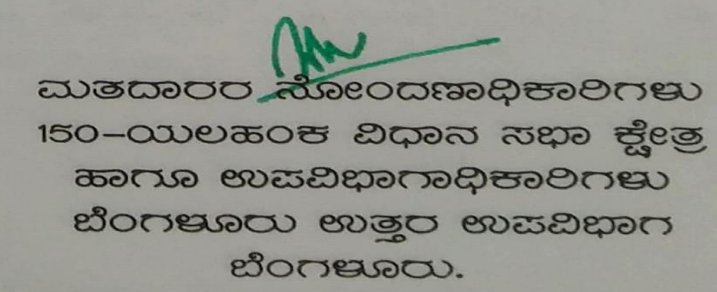 ಮತದಾರರ ನೋಂದಣಾಧಿಕಾರಿಗಳು
150-ಯಲಹಂಕ ವಿಧಾನ ಸಭಾ ಕ್ಷೇತ್ರ
ಹಾಗೂ ಉಪವಿಭಾಗಾಧಿಕಾರಿಗಳು
ಬೆಂಗಳೂರು ಉತ್ತರ ಉಪವಿಭಾಗ
ಬೆಂಗಳೂರು.